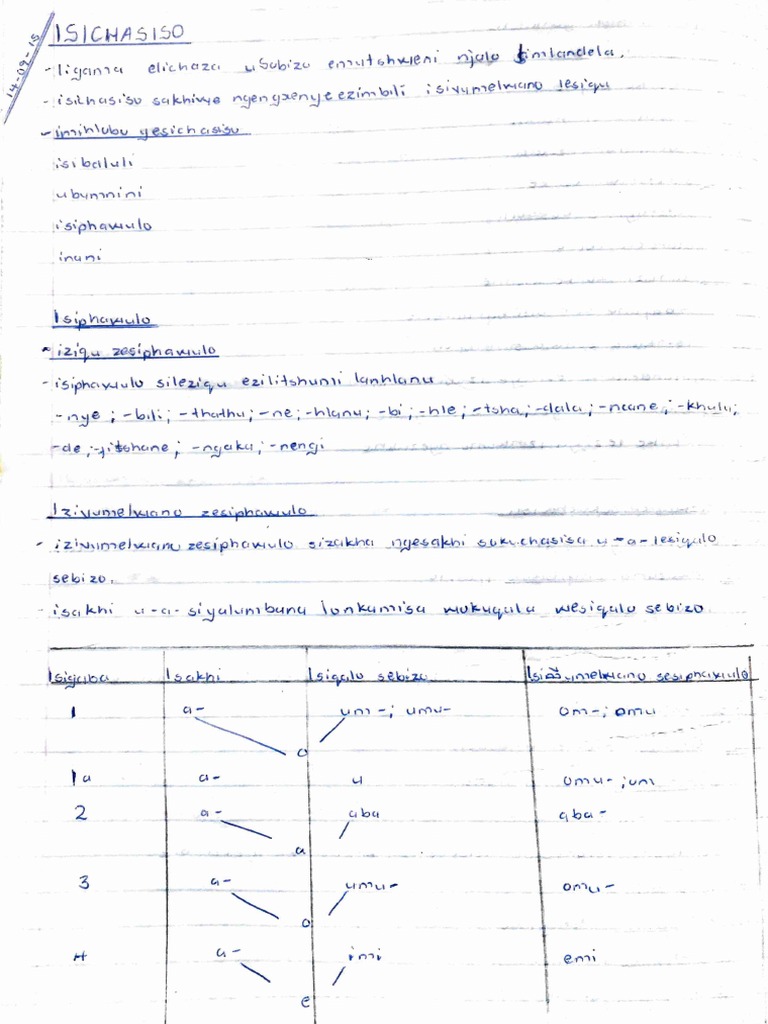 14-09-15
ISICHASISO
- ligama elichaza usobizo emutshweni njalo simlandela.
- isichasiso sakhiwe ngengxenye ezimbili isivumelwano lesiqu
- imihlobo yesichasiso
isibaluli
ubumnini
isiphawulo
inani
Isiphawulo
* iziqu zesiphawulo
- isiphawulo sileziqu ezilitshumi lanhlanu
-nye ; -bili; -thathu; -ne; -hlanu; -bi; -hle; -tsha; -dala; -ncane; -khulu;
-de; -fitshane; -ngaka; -nengi
Izivumelwano zesiphawulo
- izivumelwano zesiphawulo sizakha ngesakhi sokuchasisa u-a-lesiqalo
sebizo.
- isakhi u-a- siyalumbana lonkamisa wokuqala wesiqalo sebizo.
Isigaba Isakhi Isiqalo sebizo Isivumelwano sesiphawulo
1 a- um-; umu- om-; omu
o
1a a- u omu-; om
2 a- aba aba-
a
3 a- umu- omu-
o
4 a- imi emi
e